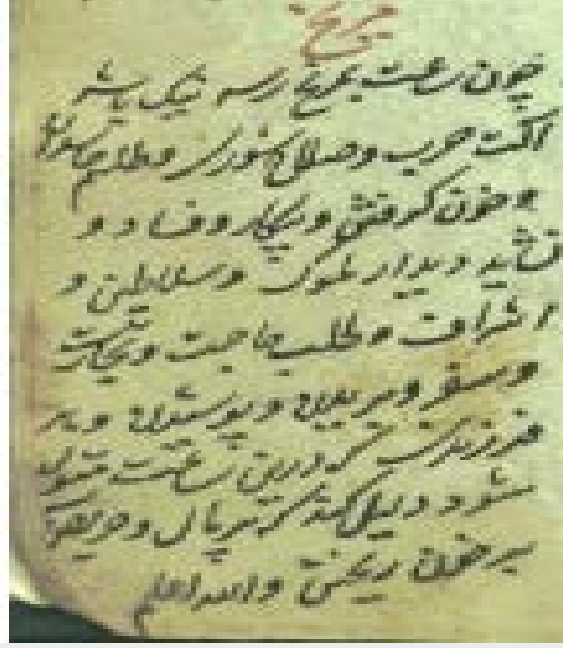 مریخ
چون ساعت بمریخ رسد نیک باشد
آلت حرب و جدال و طلسم
و خون کرفتن و پیکار و فساد و
نشاید دیدار ملوک و سلاطین و
اشراف و طلب حاجت و تجارت
و سفر و بریدن و پوشیدن و هر
فرزندی که درین ساعت متولد
شود دلیل کند که بود و حریص
بر خون ریختن والله اعلم